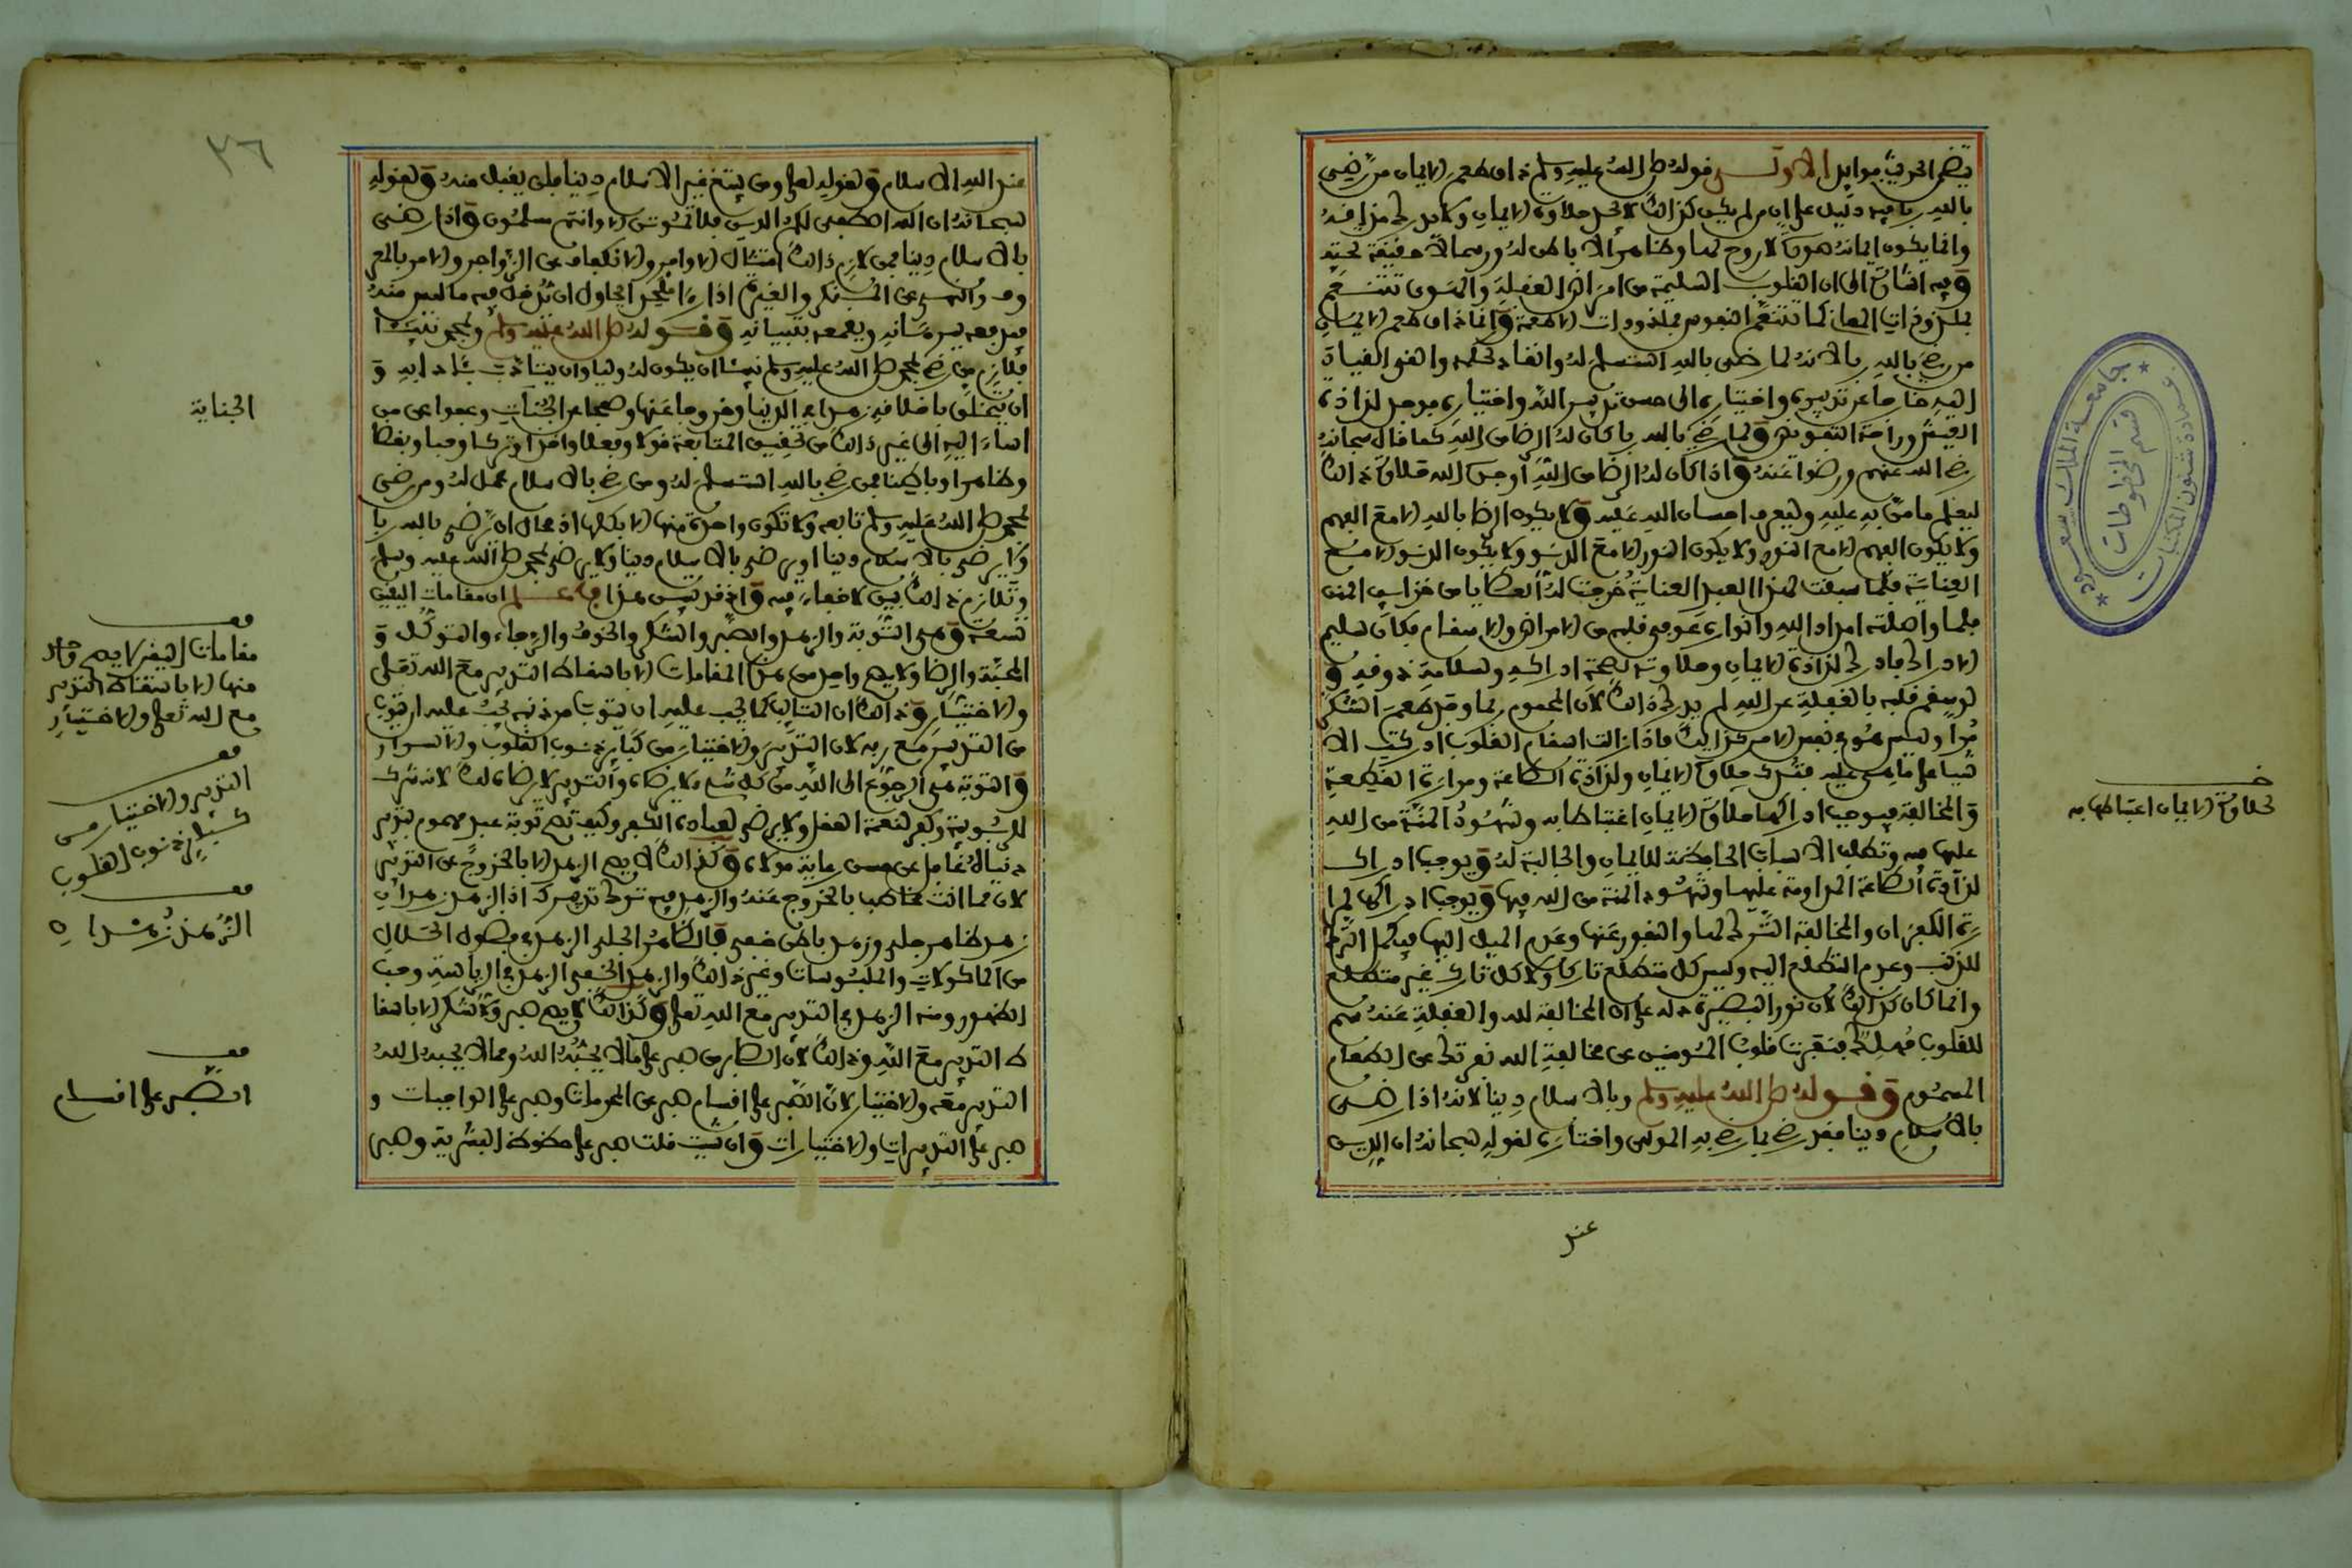 يتضمن الحديث فوايد الاولى قوله صلى الله عليه وسلم ذاق طعم الايمان من رضي
بالله ربا فيه دليل على ان من لم يكن كذالك لا يجد حلاوة الايمان ولا يدرك مذاقه
وانما يكون ايمانه صورة لا روح لها وظاهرا لا باطن له ورسما لا حقيقة تحته
وفيه اشارة الى ان القلوب السليمة من امراض الغفلة والهوى تتنعم
بملذوذات المعاني كما تتنعم النفوس بملذوذات الاطعمة وانما ذاق طعم الايمان
من رضي بالله ربا لانه لما رضي بالله استسلم له وانقاد لحكمه والقى القياد
اليه خارجا عن تدبيره واختياره الى حسن تدبير الله واختياره فوجد لذاذة
العيش وراحة التفويض ولما رضي بالله ربا كان له الرضا من الله كما قال سبحانه
رضي الله عنهم ورضوا عنه واذا كان له الرضا من الله اوجده الله حلاوة ذالك
ليعلم ما من به عليه وليعرف احسان الله عليه ولا يكون الرضا بالله الا مع الفهم
ولا يكون الفهم الا مع النور ولا يكون النور الا مع الدنو ولا يكون الدنو الا مع
العناية فلما سبقت لهذا العبد العناية خرجت له العطايا من خزاين المنن
فلما واصلته امداد الله وانواره عوفي قلبه من الامراض والاسقام فكان سليم
الادراك فادرك لذاذة الايمان وحلاوته لصحة ادراكه وسلامة ذوقه و
لو سقم قلبه بالغفلة عن الله لم يدرك ذالك لان المحموم ربما وجد طعم السكر
مرا وليس هو في نفس الامر كذالك فاذا زالت اسقام القلوب ادركت الا
شيا على ما هي عليه فتدرك حلاوة الايمان ولذاذة الطاعة ومرارة القطيعة
والمخالفة فيوجب ادراكها حلاوة الايمان اغتباطها به وشهود المنة من الله
عليها فيه وتطلب الاسباب الحافظة للايمان والجالبة له ويوجب ادراك
لذاذة الطاعة المداومة عليها وشهود المنة من الله فيها ويوجب ادراكها لمرا
رة الكفران والمخالفة الترك لهما والنفور عنها وعدم الميل اليها فيكمل الترك
للذنب وعدم التطلع اليه وليس كل متطلع تاركا ولا كل تارك غير متطلع
وانما كان كذالك لان نور البصيرة دله على ان المخالفة لله والغفلة عنه سم
للقلوب مهلك فنفرت قلوب المومنين عن مخالفة الله نفرتك عن الطعام
المسموم وقوله صلى الله عليه وسلم وبالاسلام دينا لانه اذا رضي
بالاسلام دينا فقد رضي بما رضي به المولى واختاره لقوله سبحانه ان الدين
عند
حلاوة الايمان اغتباطها به
جامعة الملك سعود
قسم المخطوطات
عمادة شئون المكتبات
٣٦
عند الله الاسلام ولقوله تعلى ومن يبتغ غير الاسلام دينا فلن يقبل منه ولقوله
سبحانه ان الله اصطفى لكم الدين فلا تموتن الا وانتم مسلمون واذا رضي
بالاسلام دينا فمن لازم ذالك امتثال الاوامر والانكفاف عن الزواجر والامر بالمعر
وف والنهي عن المنكر والغيرة اذا رءا ملحدا يحاول ان يدخل فيه ما ليس منه
فيدفعه ببرهانه ويقمعه بتبيانه وقوله صلى الله عليه وسلم وبمحمد نبيئا
فلازم من رضي بمحمد صلى الله عليه وسلم نبيئا ان يكون له وليا وان يتادب بآدابه و
ان يتخلق باخلاقه زهدا في الدنيا وخروجا عنها وصفحا عن الجناة وعفوا عن من
اساء اليه الى غير ذالك من تحقيق المتابعة قولا وفعلا واخذا وتركا وحبا وبغضا
وظاهرا وباطنا فمن رضي بالله استسلم له ومن رضي بالاسلام عمل له ومن رضي
بمحمد صلى الله عليه وسلم تابعه ولا تكون واحدة منها الا بكلها اذ محال ان يرضى بالله ربا
ولا يرضى بالاسلام دينا او يرضى بالاسلام دينا ولا يرضى بمحمد صلى الله عليه وسلم
وتلازم ذالك بين لا خفاء فيه واذ قد تبين هذا فاعلم ان مقامات اليقين
تسعة وهي التوبة والزهد والصبر والشكر والخوف والرجاء والتوكل و
المحبة والرضا ولا يصح واحد من هذه المقامات الا باسقاط التدبير مع الله تعلى
والاختيار وذالك ان التايب كما يجب عليه ان يتوب من ذنبه يجب عليه ان يتوب
من التدبير مع ربه لان التدبير والاختيار من كباير ذنوب القلوب والاسرار
والتوبة هي الرجوع الى الله من كل شيء لا يرضاه والتدبير لا يرضاه لك لانه شرك
للربوبية وكفر لنعمة العقل ولا يرضى لعباده الكفر وكيف تصح توبة عبد مهموم بتدبير
دنياه غافل عن حسن رعاية مولاه وكذالك لا يصح الزهد الا بالخروج عن التدبير
لان مما انت مخاطب بالخروج عنه والزهد فيه ترك تدبيرك اذ الزهد زهدان
زهد ظاهر جلي وزهد باطن خفي فالظاهر الجلي الزهد في فضول الحلال
من الماكولات والملبوسات وغير ذالك والزهد الخفي الزهد في الرياسة وحب
الظهور ومنه الزهد في التدبير مع الله تعلى وكذالك لا يصح صبر ولا شكر الا باسقا
ط التدبير مع الله وذالك لان الصابر من صبر على ما لا يحبه الله ومما لا يحبه الله
التدبير معه والاختيار لان الصبر على اقسام صبر عن المحرمات وصبر على الواجبات و
صبر على التدبيرات والاختيارات وان شيت قلت صبر على حظوظ البشرية وصبر
الجناية
قف
مقامات اليقين لا يصح واحد
منها الا باسقاط التدبير
مع الله تعلى والاختيار
قف
التدبير والاختيار من
كباير ذنوب القلوب
قف
الزهد زهدان
قف
الصبر على اقسام